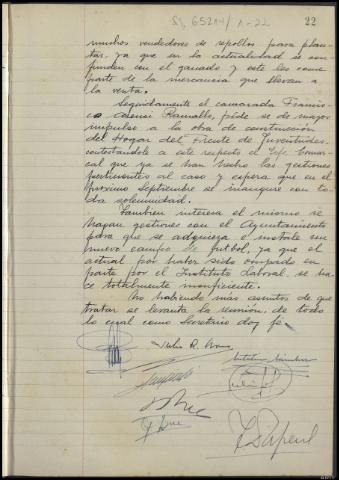 SJ 65204/1-22
22
muchos vendedores de repollos para plan-
tar, ya que en la actualidad se con-
funden con el ganado y este les come
parte de la mercancia que llevan a
la venta.
Seguidamente el camarada Francis-
co Asensi Ramallo, pide se de mayor
impulso a la obra de construcción
del Hogar del Frente de Juventudes,
contestandole a este respecto el Jefe Comar-
cal que ya se han hecho las gestiones
pertinentes al caso y espera que en el
proximo Septiembre se inaugure con to-
da solemnidad.
Tambien interesa el mismo se
hagan gestiones con el Ayuntamiento
para que se adquiera o instale un
nuevo campo de futbol, ya que el
actual por haber sido ocupado en
parte por el Instituto Laboral, se ha-
ce totalmente insuficiente.
No habiendo mas asuntos de que
tratar se levanta la reunión, de todo
lo cual como Secretario doy fé.
Julio R.